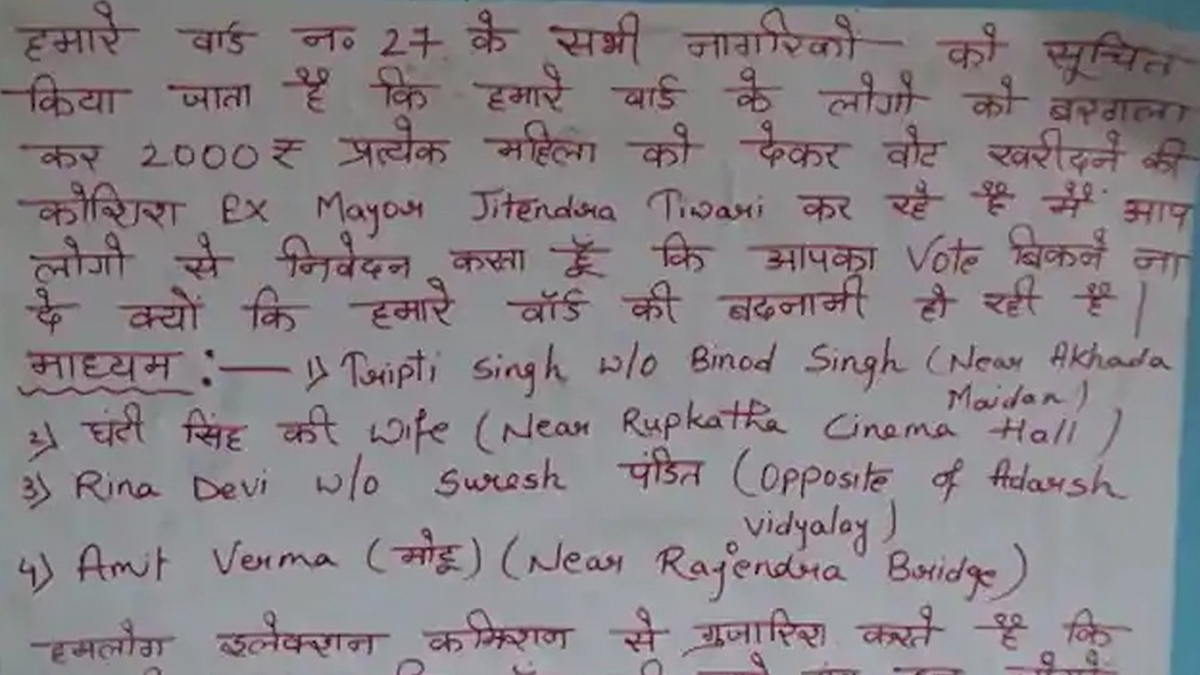 हमारे वार्ड न॰ 27 के सभी नागरिकों को सूचित
किया जाता है कि हमारे वार्ड के लोगो को बरगला
कर 2000₹ प्रत्येक महिला को देकर वोट खरीदने की
कोशिश EX Mayor Jitendra Tiwari कर रहे है मैं आप
लोगो से निवेदन करता हूँ कि आपका Vote बिकने ना
दे क्यों कि हमारे वॉर्ड की बदनामी हो रही है।
माध्यम :— 1) Tripti Singh w/o Binod Singh (Near Akhada
Maidan)
2) घंटी सिंह की wife (Near Rupkatha Cinema Hall)
3) Rina Devi w/o Suresh पंडित (Opposite of Adarsh
vidyalay)
4) Amit Verma (मोटू) (Near Rajendra Bridge)
हमलोग इलेक्शन कमिशन से गुजारिश करते है कि